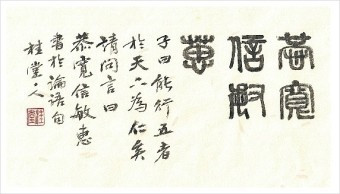 恭寬
信敏
惠
子曰能行五者
於天下為仁矣
請問言曰
恭寬信敏惠
書於論語句
桂堂人